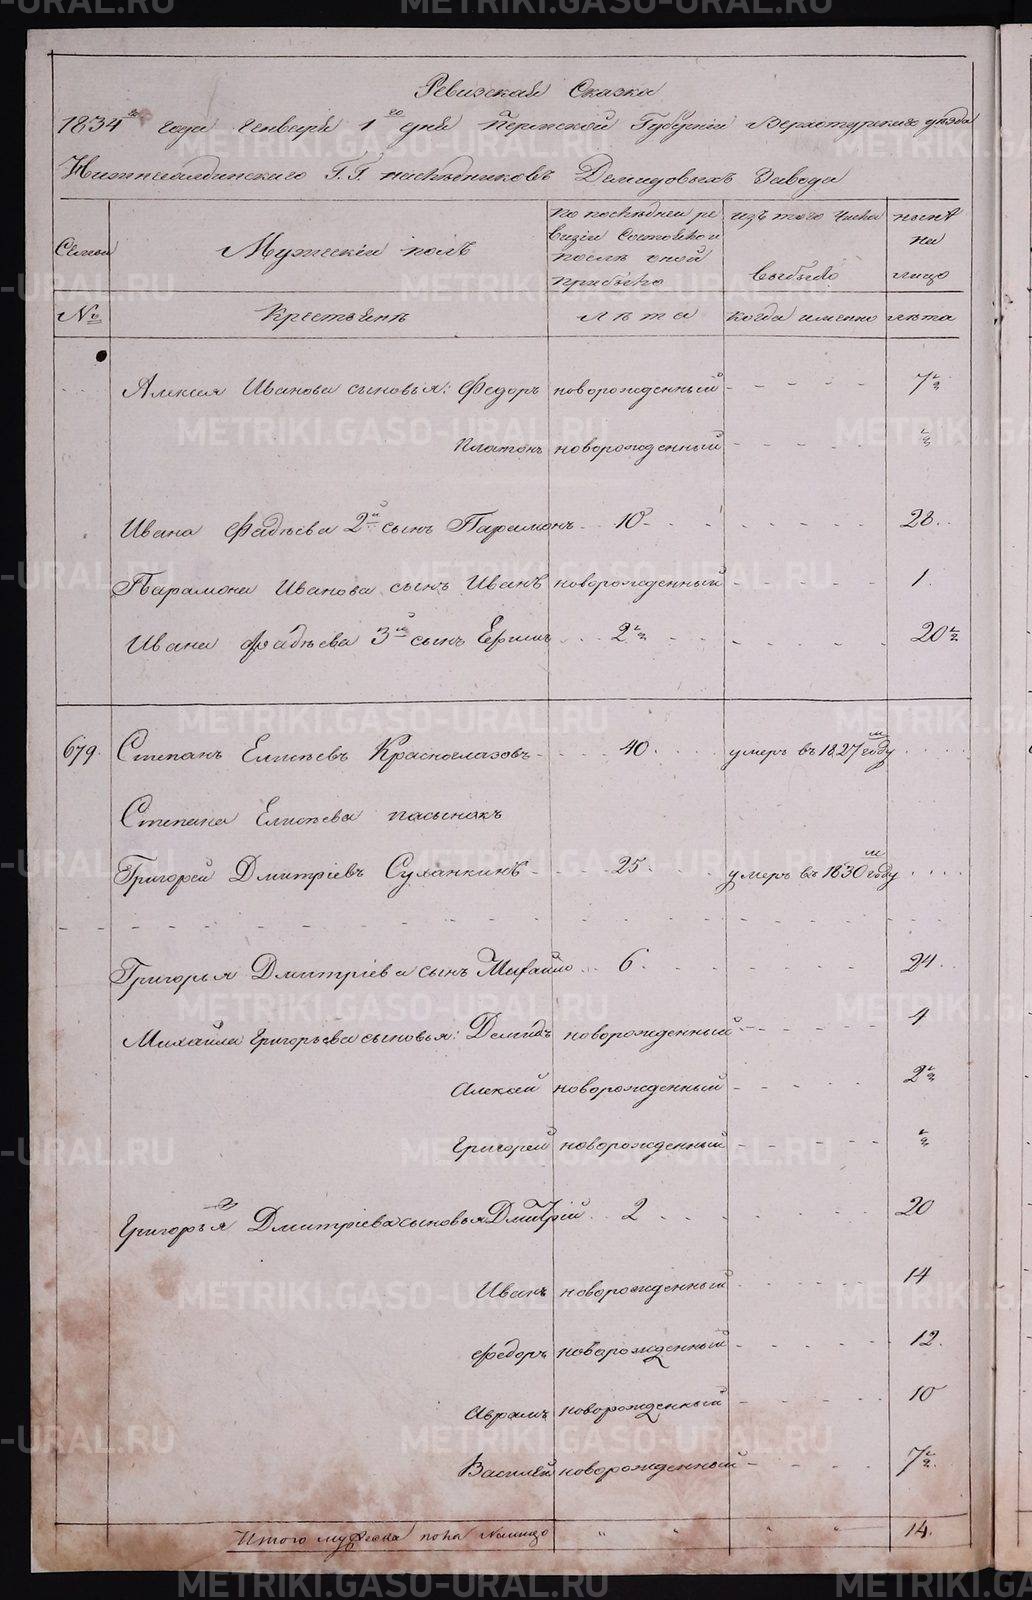 Ревизская Сказка
1834го года генваря 1го дня Пермской Губернiи Верхотурскаго уѣзда
Нижнесалдинскаго Г.Г. наслѣдниковъ Демидовыхъ Завода
Семьи
Мужескiй полъ
по послѣдней ре
визiи Состояло и
послѣ оной
прибыло
изъ того числа
выбыло
нынѣ
на
лицо
№
Крестьянъ
лѣта
когда именно
лѣта
Алексея Иванова сыновья: Федоръ новорожденный - - - - - 7 1/2
Платонъ новорожденный - - - - - 1/2
Ивана Фадѣева 2й сынъ Парамонъ - 10 - - - - - - 28.
Парамона Иванова сынъ Иванъ новорожденный - - - - - 1.
Ивана Фадѣева 3й сынъ Ермилъ . . 2 1/2 - - - - - - - 20 1/2
679. Степанъ Елисѣевъ Красноглазовъ - - - - 40. . . . . умеръ въ 1827м году . . . .
Степана Елисѣева пасынакъ
Григорей Дмитрiевъ Суланкинъ - - - - 25. - - - умеръ въ 1830м году . . . .
Григорья Дмитрiева сынъ Михайло . . 6. - - - - - - - 24.
Михайла Григорьева сыновья: Демидъ новорожденный - - - - - 4
Алексей новорожденный - - - - - 2 1/2
Григорей новорожденный - - - - - 1/2
Григорья Дмитрiева сыновья Дмитрiй . . 2 . . - - - - - 20
Иванъ новорожденный - - - - - 14
Федоръ новорожденный - - - - - 12.
Аврамъ новорожденный - - - - - 10
Василей новорожденный - - - - - 7 1/2.
Итого мужеска пола налицо " " " " 14.
METRIKI.GASO-URAL.RU